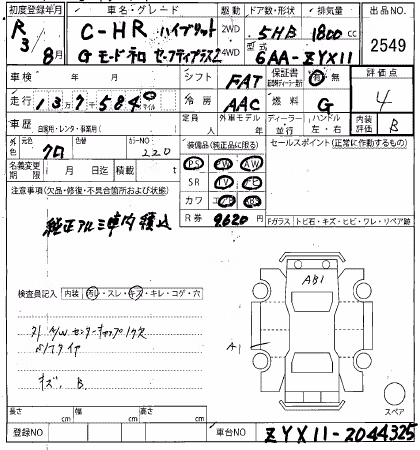 初度登録年月 車名・グレード 駆動 ドア数・形状 排気量 出品NO.
R3/8月 C-HR ハイブリット 2WD 5HB 1800cc
G モードネロ セーフティプラス2 4WD 型式 6AA-ZYX11 2549
車検 年 月 シフト FAT 保証書 有 無 評価点
走行 13万7千584 0 マイル 冷房 AAC 燃料 G 4
車歴 自家用・レンタ・事業用( ) 定員 外車モデル 年 ディーラー 並行 ハンドル 左・右 内装評価 B
外色 元色 クロ 色替 カラーNO 220 装備品(純正品に限る) セールスポイント(正常に動作するもの)
名義変更期限 月 日 積載 t PS PW AW
注意事項(欠品・修復・不具合箇所および状態) SR TV ナビ
カワ エアB ABS
純正アルミ車内積込 R券 9620円 Fガラス トビ石・キズ・ヒビ・ワレ・リペア跡
AB1
検査員記入 内装 汚レ・スレ・キズ・キレ・コゲ・穴
社外A/W センターキャップ欠
A1
キズ、B
スペア
長さ cm 幅 cm 高さ cm
登録NO 車台NO ZYX11-2044325